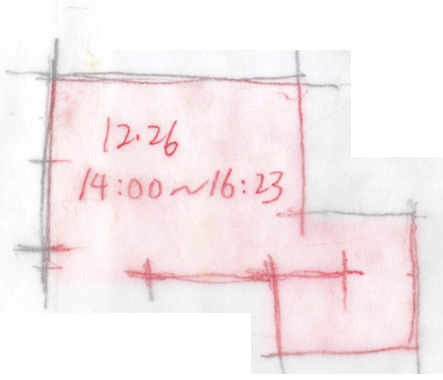 12.26
14:00~16:23